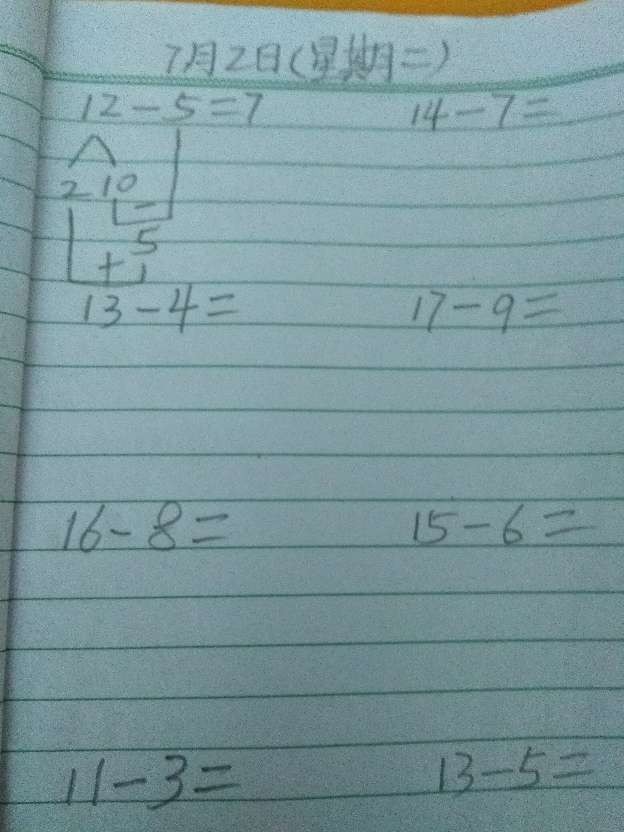 7月2日(星期二)
12-5=7 14-7=
2 10
-
5
+
13-4= 17-9=
16-8= 15-6=
11-3= 13-5=